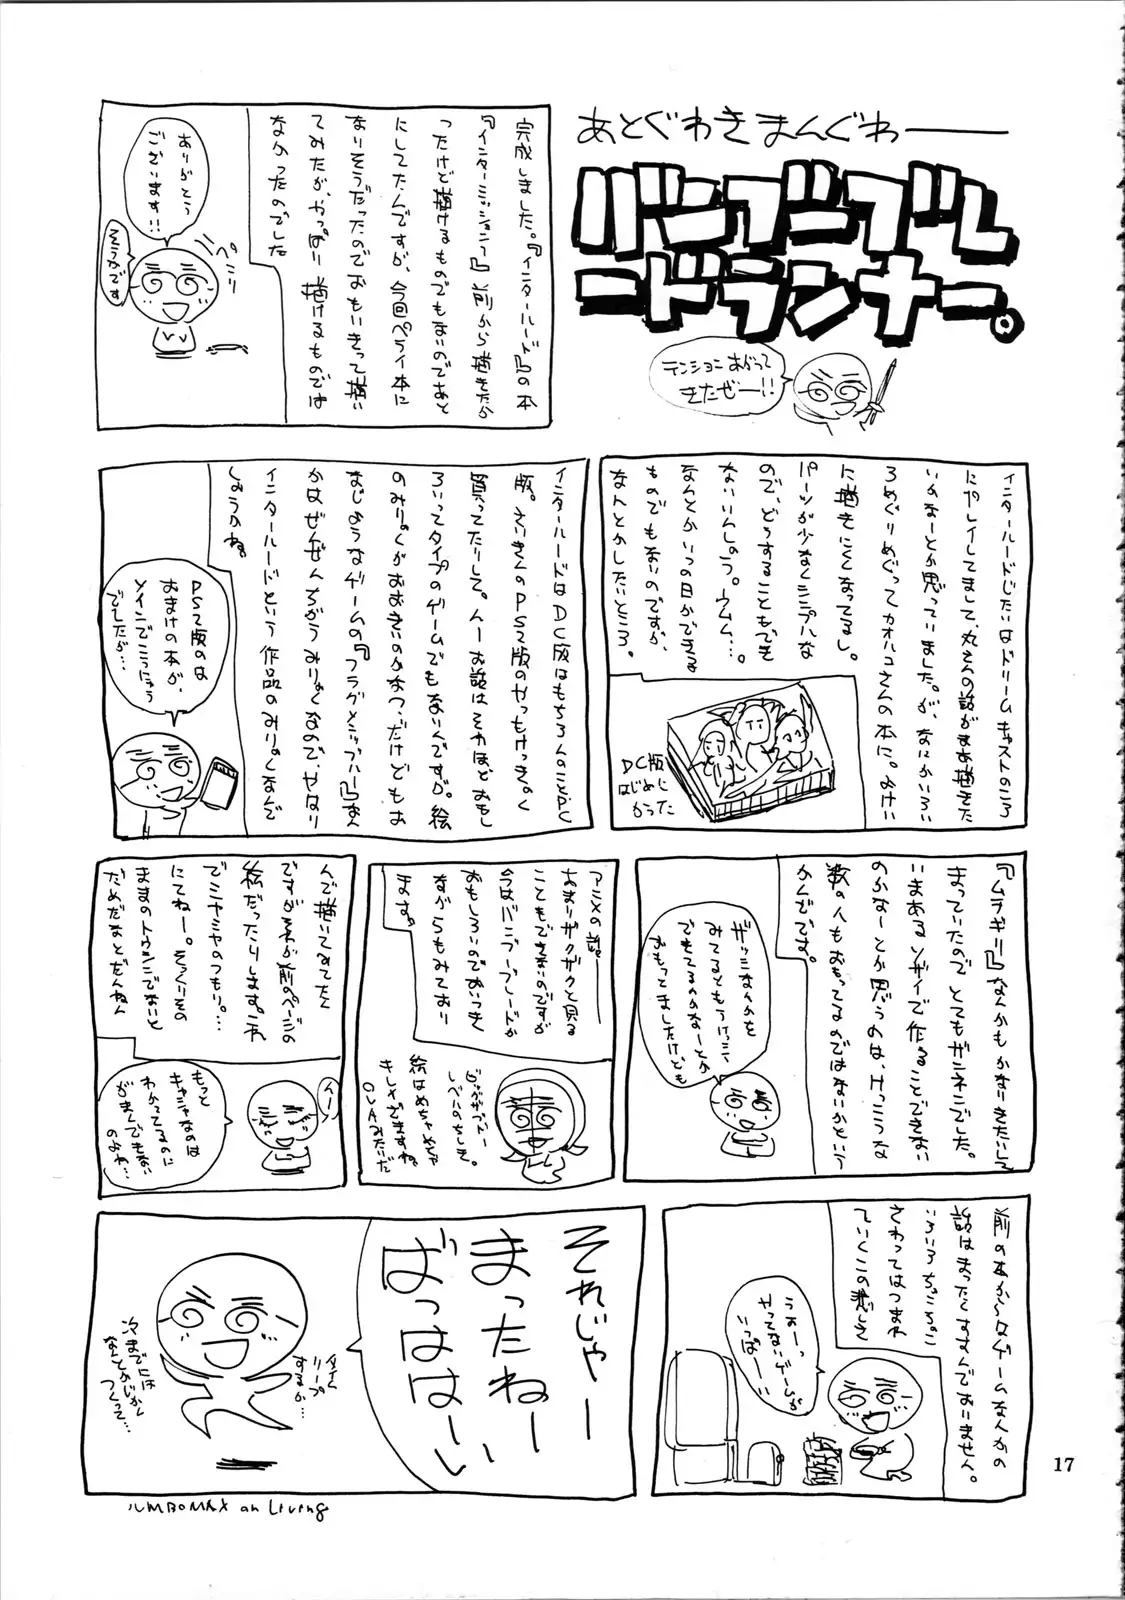 あとぐわきまんぐわー
バンブーブレ
ードランナー。
テンションあがって
きたぜー!!
完成しました。『インタールード』の本
『インターミッション』前から描きたか
ったけど描けるものでもないのであと
にしてたんですが、今回ペライ本に
なりそうだったのでおもいきって描い
てみたが、やっぱり描けるものでは
なかったのでした
ありがとう
ございます!!
ペこり
そうかです
インタールードじたいはドリームキャストのころ
にプレイしてまして、丸さんの話がまあ描きた
いかなーとか思っていました。が、なにかいろい
ろめぐりめぐってカオルコさんの本に。よけい
に描きにくくなってるし。
パーツが少なくシンプルな
ので、どうすることもでき
ないいんしょう。ウムム…。
なんとかいつの日かできる
ものでもないのですが、
なんとかしたいところ。
DC版
はじめに
かった
インタールードはDC版はもちろんのことPC
版。さいきんのPS2版のやつもけっきょく
買ってたりして。んー お話はそれほどおもし
ろいってタイプのゲームでもないんですが。絵
のみりょくがおおきいのかなっ、だけどもお
なじようなゲームの『フラグメンツブルー』なん
かはぜんぜんちがうみりょくなので、やはり
インタールードという作品のみりょくなんで
しょうかね。
PS2版のは
おまけの本が、
ツインでこうにゅう
でしたが…
『ムラギリ』なんかもかなりきたいして
まっていたので とてもザンネンでした。
いまあるソザイで作ることできない
のかなーとか思うのは、けっこうな
数の人もおもってるのではないかという
かんじです。
ギッシュなんかを
みてるともうけっこう
できてるんかなーとか
おもってましたけども
アニメの話ー
あまりザクザクと見る
こともできないのですが
今はバンブーブレードが
おもしろいのでおいつき
ながらもみており
ます。
絵はめちゃめちゃ
きれいですね。
OVAみたいだ
んで描いてみてたん
ですがそれが前のページの
絵だったりします。これ
でミヤミヤのつもり。…
にてねー。そっくりその
ままのトウシンでないと
だめだなとだんねん
んー
もっと
キャシャなのは
わかってるのに
がまんできない
のよね…
前の本からはゲームなんかの
話はまったくすすんでおりません。
いろいろちょこちょこ
さわってはつまれ
ていくこの悲しさ
うおーっ
やってないゲームが
いっぱーい!!
それじゃー
まったねーい
ばっははーい
タイム
リープ
するか…
次までには
なんとかじかん
つくって…
ルMBOMAX on Living
17